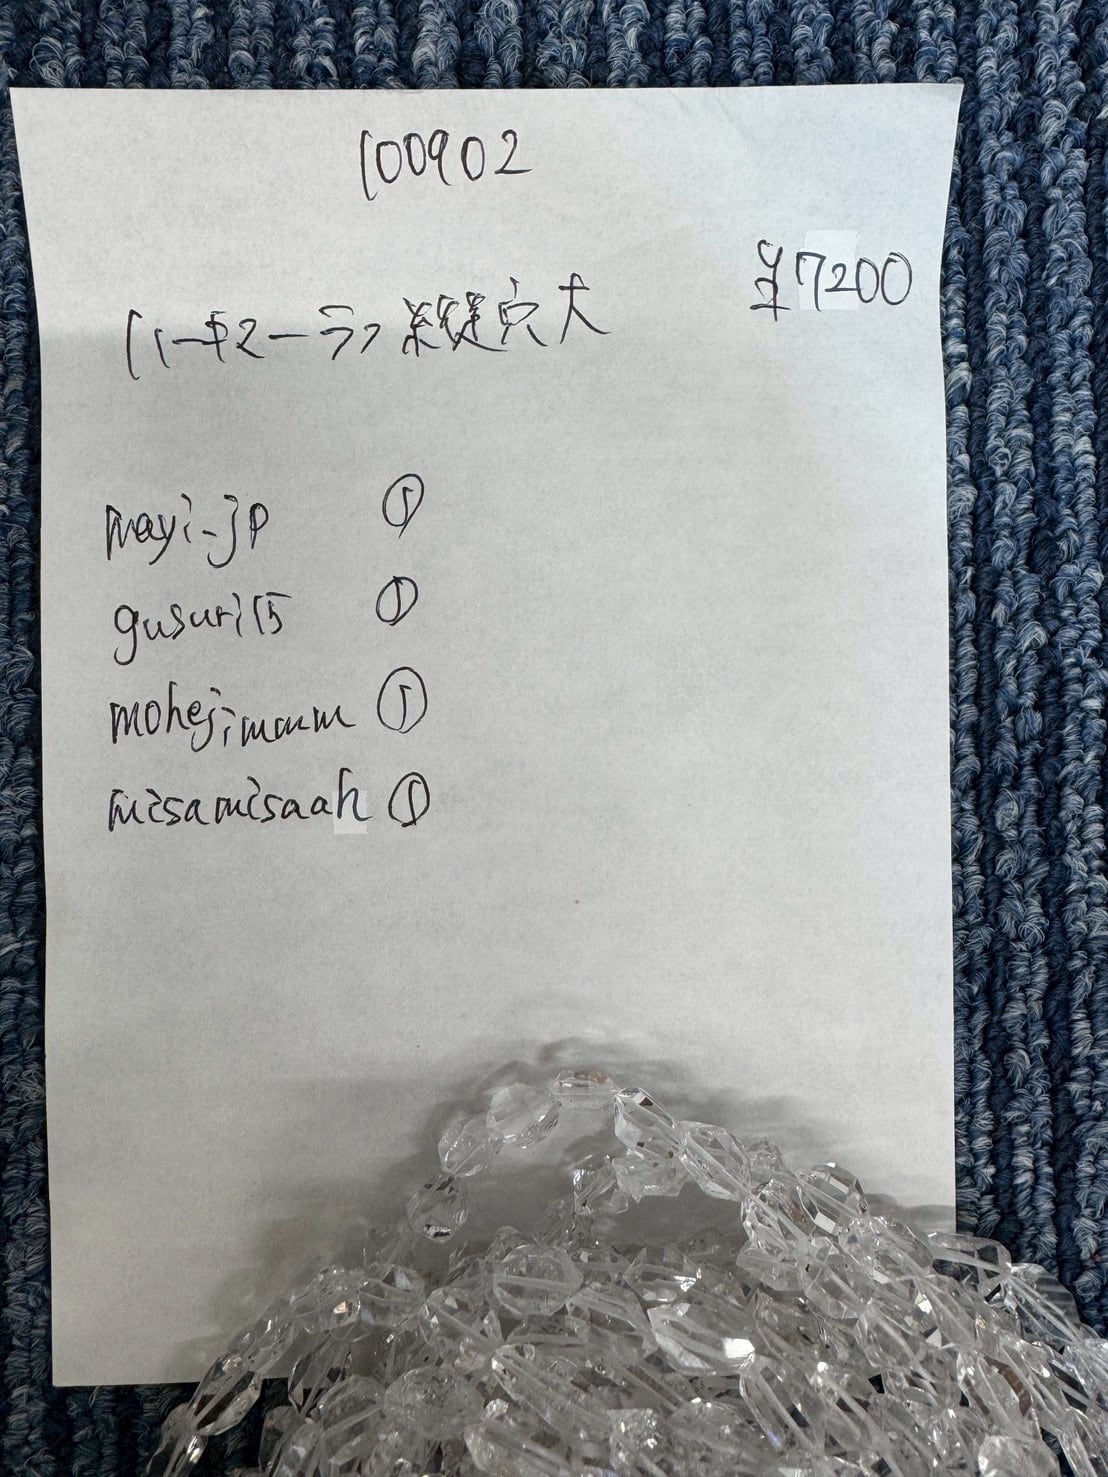 100902
¥7200
ハーキマーランク縦穴大
mayi-jp ①
gusuri15 ①
mohejimmm ①
misamisaah ①